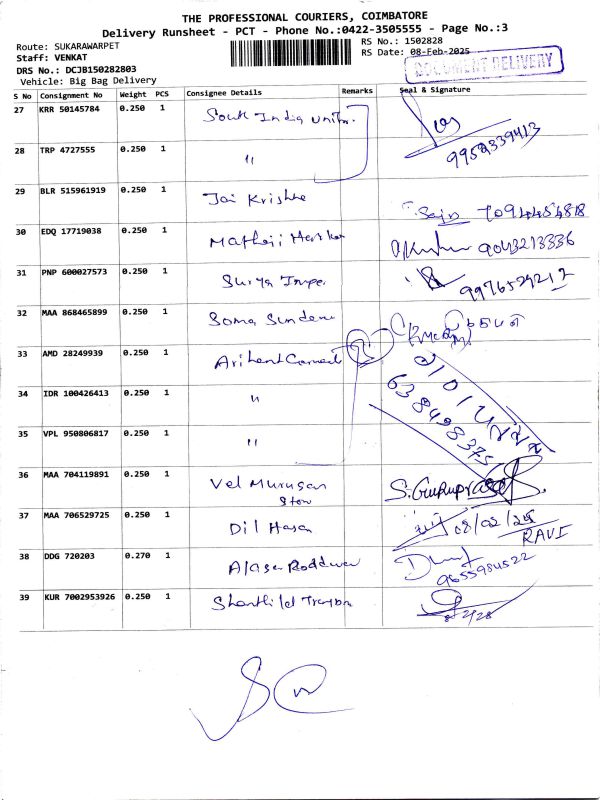 THE PROFESSIONAL COURIERS, COIMBATORE
Delivery Runsheet - PCT - Phone No.:0422-3505555 - Page No.:3
Route: SUKARAWARPET
RS No.: 1502828
Staff: VENKAT
RS Date: 08-Feb-2025
DRS No.: DCJB150282803
DOCUMENT DELIVERY
Vehicle: Big Bag Delivery
S No Consignment No Weight PCS Consignee Details Remarks Seal & Signature
27 KRR 50145784 0.250 1 South India
28 TRP 4727555 0.250 1 "
9952339413
29 BLR 515961919 0.250 1 Jai Krishna
30 EDQ 17719038 0.250 1 9043213336
31 PNP 600027573 0.250 1 Surya 9976529212
32 MAA 868465899 0.250 1 Soma Sundaram
33 AMD 28249939 0.250 1 Arihant Garment
34 IDR 100426413 0.250 1 "
6384983755
35 VPL 950806817 0.250 1 "
36 MAA 704119891 0.250 1 Vel Murugan Store S. Guruprasad
37 MAA 706529725 0.250 1 Dil 08/02/25
RAVI
38 DDG 720203 0.270 1 9655984522
39 KUR 7002953926 0.250 1